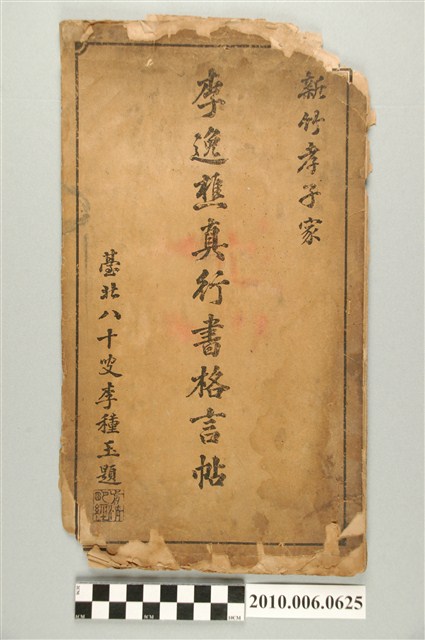 新竹孝子家
李逸樵真行書格言帖
臺北八十叟李種玉題
2010.006.0625